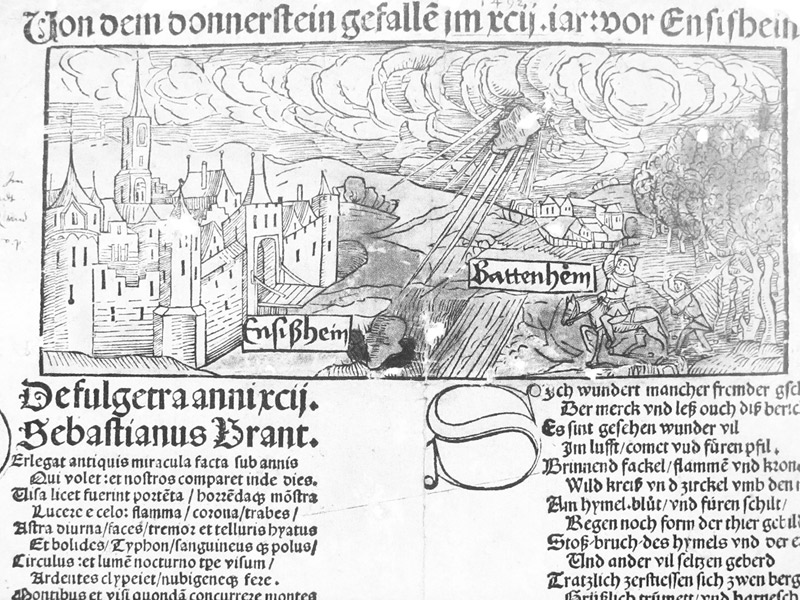 Von dem donnerstein gefallē jm xcij. iar: vor Ensisheim
1492
Battenhēm
Ensißheim
De fulgetra anni xcij.
Sebastianus Brant.
Perlegat antiquis miracula facta sub annis
Qui volet: et nostros comparet inde dies.
Uisa licet fuerint portēta / horrēdaqꝫ mōstra
Lucere e celo: flamma / corona / trabes /
Astra diurna / faces / tremor et telluris hyatus
Et bolides / Typhon / sanguineusqꝫ polus /
Circulus: et lumē nocturno tꝑe visum /
Ardentes clypei et / nubigeneqꝫ fere.
Montibus et visi quondā concurrere montes
Sych wundert mancher fremder gsch
Der merck vnd leß ouch diß beric
Es sint gesehen wunder vil
Im lufft / comet vnd füren pfil.
Brinnend fackel / flammē vnd kron
Wild kreiß vnd zirckel vmb den m
Am hymel. blůt / vnd füren schilt /
Regen noch form der thier gebild
Stoß. bruch. des hymels vnd der e
Und ander vil seltzen geberd
Tratzlich zerstiessen sich zwen berg
Grüßlich trümett / vnd harnesch